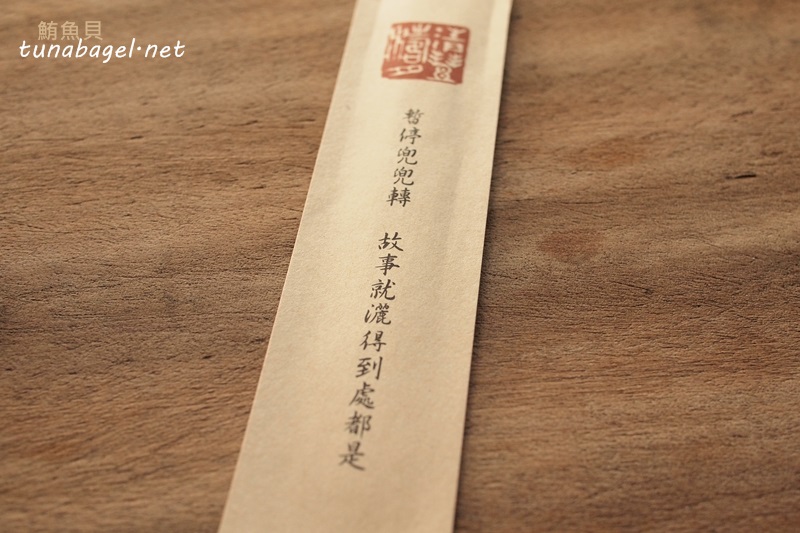 鮪魚貝
tunabagel.net
暫停兜兜轉　故事就灑得到處都是